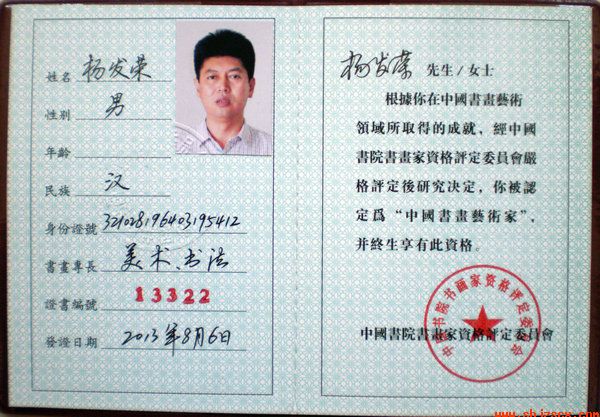 姓名 杨发荣
性别 男
年齡
民族 汉
身份證號 321028196403195412
書畫專長 美术、书法
證書編號 13322
發證日期 2013年8月6日
杨发荣 先生/女士
根據你在中國書畫藝術
領域所取得的成就，經中國
書院書畫家資格評定委員會嚴
格評定後研究决定，你被認
定爲“中國書畫藝術家”，
并終生享有此資格。
中國書院書畫家資格評定委員會
中国书院书画家资格评定委员会